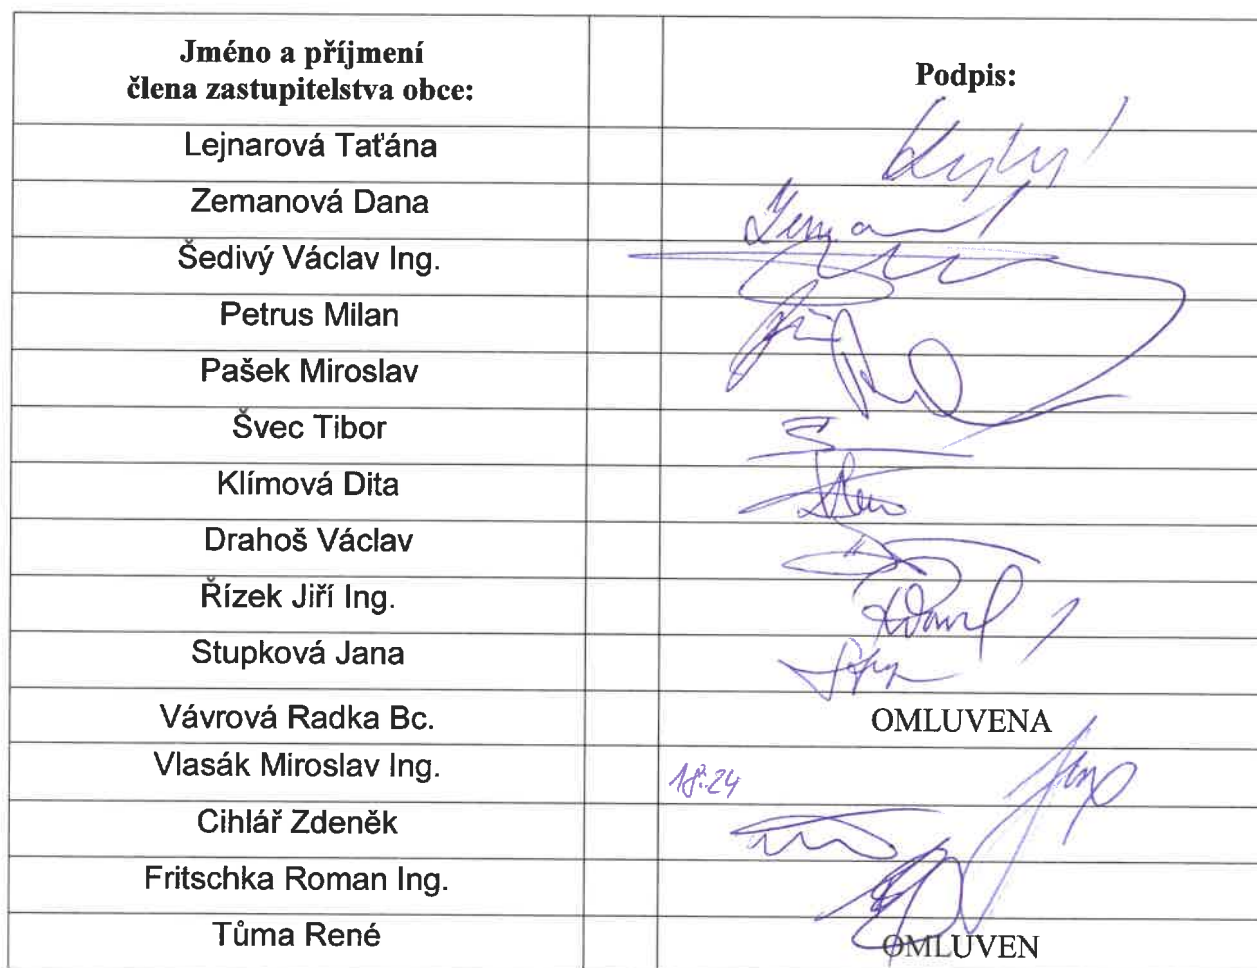 Jméno a příjmení
člena zastupitelstva obce:
Podpis:
Lejnarová Taťána
Zemanová Dana
Šedivý Václav Ing.
Petrus Milan
Pašek Miroslav
Švec Tibor
Klímová Dita
Drahoš Václav
Řízek Jiří Ing.
Stupková Jana
Vávrová Radka Bc. OMLUVENA
Vlasák Miroslav Ing. 18:24
Cihlář Zdeněk
Fritschka Roman Ing.
Tůma René OMLUVEN